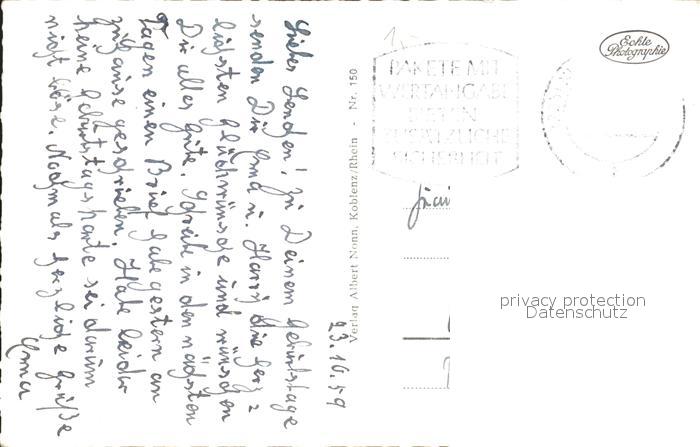 23.10.59
Liebes Lenchen! Zu Deinem Geburtstage
senden Dir Oma u. Harry die herz=
lichsten Glückwünsche und wünschen
Dir alles Gute. Schreibe in den nächsten
Tagen einen Brief habe gestern an
geschrieben. Habe leider
keine Geburtstagskarte sei darum
nicht böse. Nochmals herzliche Grüße
Oma
Verlag Albert Nonn, Koblenz/Rhein - Nr. 150
PAKETE MIT
WERTANGABE
BIETEN
ZUSÄTZLICHE
SICHERHEIT
Echte
Photographie
privacy protection
Datenschutz